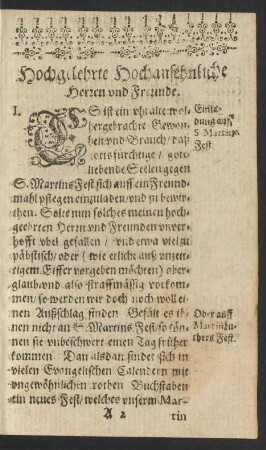 Hochgelehrte Hochansehnliche
Herren vnd Freunde.
I.
ES ist ein vhralte wol
hergebrachte Gewon-
heit vnd Brauch / daß
Gottsfürchtige / gott-
liebende Seelen gegen
S. Martins Fest sich auff ein Freund-
mahl pflegen einzuladen / vnd zu bewir-
then. Solte nun solches meinen hoch-
geehrten Herrn vnd Freunden vnver-
hofft übel gefallen / vnd etwa vielzu
päbstisch / oder (wie etliche auß vnzei-
tigem Eiffer vorgeben möchten) aber-
glaub. vnd also straffmässig vorkom-
men / so werden wir doch noch wol ei-
nen Außschlag finden Gefält es ih-
nen nicht an S. Martins Fest / so kön-
nen sie vnbeschwert einen Tag früher
kommen Dan alsdan findet sich in
vielen Evangelischen Calendern mit
vngewöhnlichen rothen Buchstaben
ein neues Fest / welches vnserm Mar-
A 2
tin
Einla-
dung auff
S Martins
Fest
Oder auff
Martin Lu-
thers Fest.